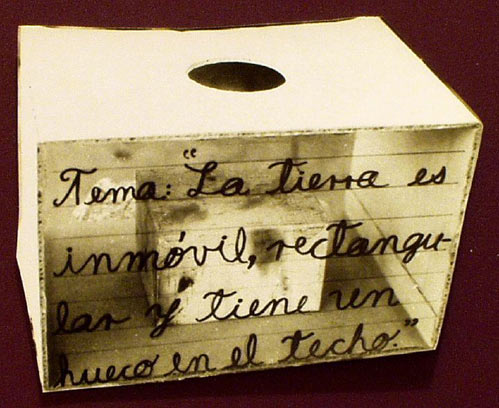 Tema: "La tierra es
inmóvil, rectangu-
lar y tiene un
hueco en el techo."